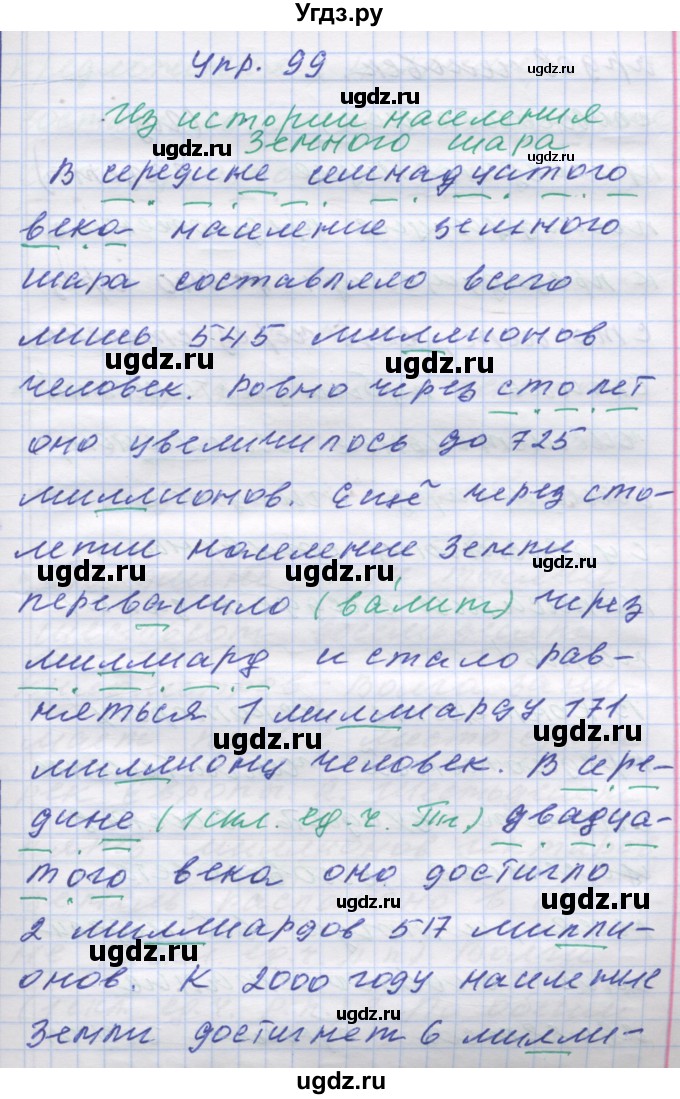 Угдз.ру
Упр. 99
Из истории населения
Земного шара
В середине семнадцатого
века население земного
шара составляло всего
лишь 545 миллионов
человек. Ровно через сто лет
оно увеличилось до 725
миллионов. Ещё через сто-
летии население Земли
перевалило (валит) через
миллиард и стало рав-
няться 1 миллиарду 171
миллиону человек. В сере-
дине (1 скл. ед. ч. Пп) двадца-
того века оно достигло
2 миллиардов 517 милли-
онов. К 2000 году население
Земли достигнет 6 милли-
ugdz.ru